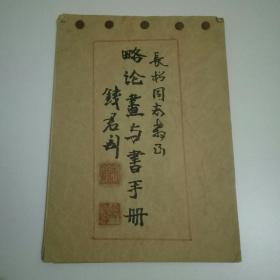 長松同志嘱正
略论畫与書手册
錢君匋